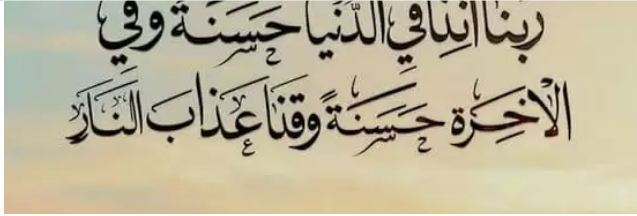 ربنا آتنا في الدنيا حسنة وفي
الْآخِرَة حَسَنَةً وَقِنَا عَذَابَ النَّارِ